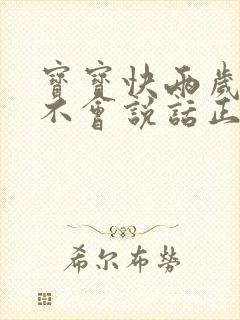 寶寶快兩歲
不會說話正
希尔布勞